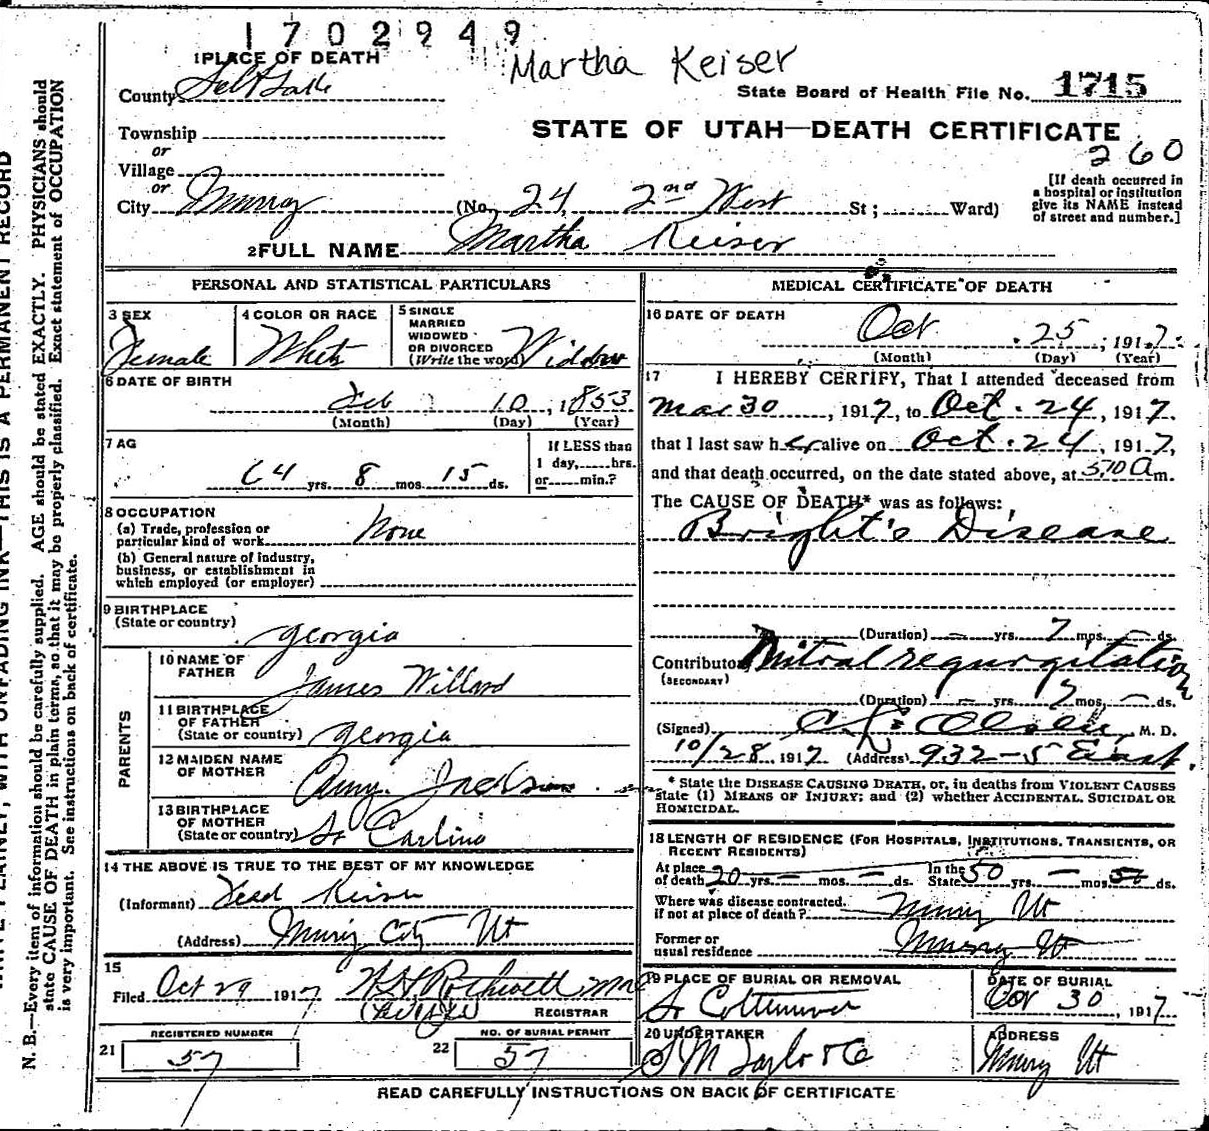 1702949
Martha Keiser
1 PLACE OF DEATH
County Salt Lake
State Board of Health File No. 1715
Township
STATE OF UTAH—DEATH CERTIFICATE
or
260
Village
or
City Murray (No. 24, 2nd West St; Ward)
[If death occurred in
a hospital or institution
give its NAME instead
of street and number.]
2 FULL NAME Martha Keiser
PERSONAL AND STATISTICAL PARTICULARS
3 SEX
Female
4 COLOR OR RACE
White
5 SINGLE
MARRIED
WIDOWED
OR DIVORCED
(Write the word) Widow
6 DATE OF BIRTH
Feb 10, 1853
(Month) (Day) (Year)
7 AG
64 yrs. 8 mos. 15 ds.
If LESS than
1 day, hrs.
or min.?
8 OCCUPATION
(a) Trade, profession or
particular kind of work None
(b) General nature of industry,
business, or establishment in
which employed (or employer)
9 BIRTHPLACE
(State or country)
Georgia
PARENTS
10 NAME OF
FATHER
James Willard
11 BIRTHPLACE
OF FATHER
(State or country) Georgia
12 MAIDEN NAME
OF MOTHER
Amy Jackson
13 BIRTHPLACE
OF MOTHER
(State or country) So Carlina
14 THE ABOVE IS TRUE TO THE BEST OF MY KNOWLEDGE
(Informant) Keiser
(Address) Murray City Ut
15
Filed Oct 29 1917
REGISTRAR
REGISTERED NUMBER
21 57
NO. OF BURIAL PERMIT
22 57
MEDICAL CERTIFICATE OF DEATH
16 DATE OF DEATH
Oct 25, 1917.
(Month) (Day) (Year)
17 I HEREBY CERTIFY, That I attended deceased from
Mar 30, 1917, to Oct. 24, 1917.
that I last saw her alive on Oct. 24, 1917,
and that death occurred, on the date stated above, at 5:10 A m.
The CAUSE OF DEATH* was as follows:
Bright's Disease
(Duration) — yrs. 7 mos. — ds.
Contributory Mitral regurgitation
(SECONDARY)
(Duration) — yrs. 7 mos. — ds.
(Signed) Olsen, M. D.
10/28 1917 (Address) 932—5 East.
* State the DISEASE CAUSING DEATH, or, in deaths from VIOLENT CAUSES
state (1) MEANS OF INJURY; and (2) whether ACCIDENTAL, SUICIDAL OR
HOMICIDAL.
18 LENGTH OF RESIDENCE (FOR HOSPITALS, INSTITUTIONS, TRANSIENTS, OR
RECENT RESIDENTS)
At place
of death 20 yrs. — mos. — ds.
In the
State 50 yrs. — mos. ds.
Where was disease contracted,
if not at place of death? Murray Ut
Former or
usual residence Murray Ut
19 PLACE OF BURIAL OR REMOVAL
So Cottonwood
DATE OF BURIAL
30, 1917
20 UNDERTAKER
S M Taylor & Co
ADDRESS
Murray Ut
READ CAREFULLY INSTRUCTIONS ON BACK OF CERTIFICATE
WITH UNFADING INK—THIS IS A PERMANENT RECORD
N. B.—Every item of information should be carefully supplied. AGE should be stated EXACTLY. PHYSICIANS should
state CAUSE OF DEATH in plain terms, so that it may be properly classified. Exact statement of OCCUPATION
is very important. See instructions on back of certificate.